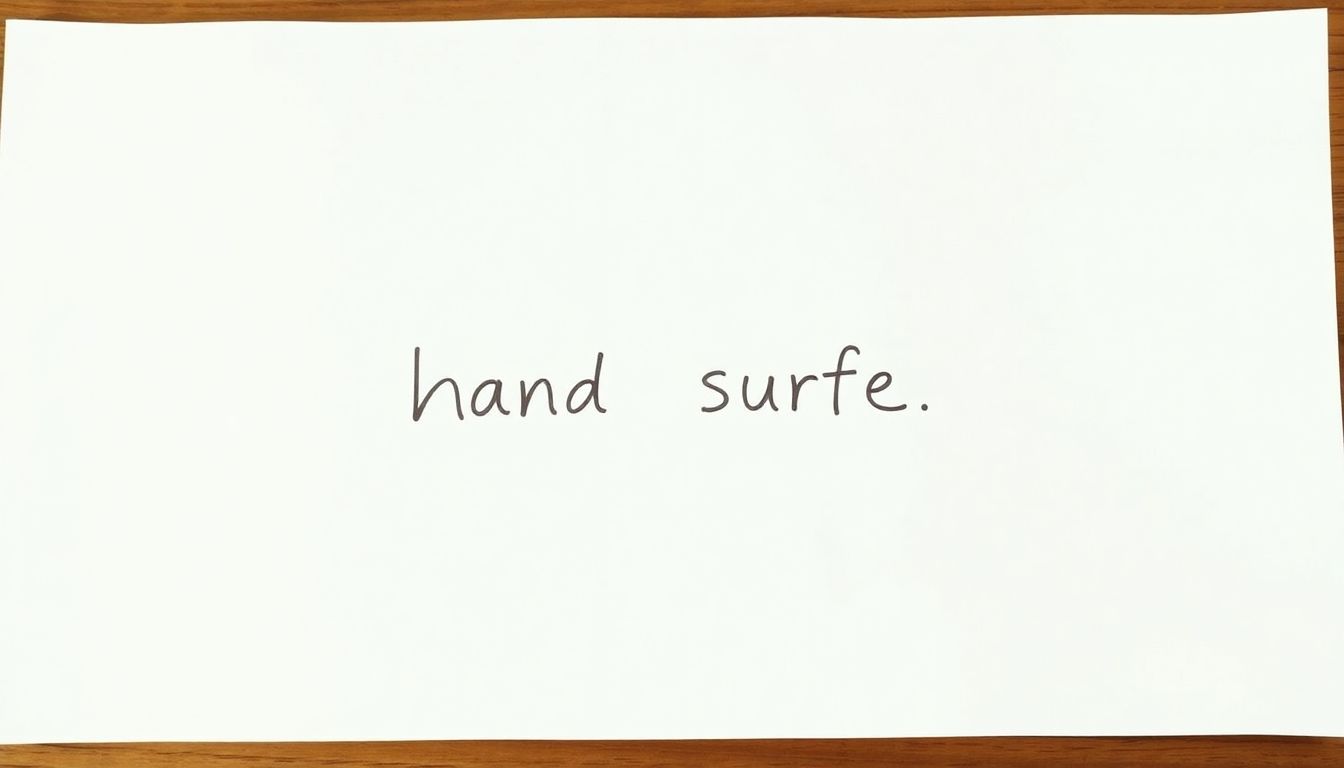 hand surfe.